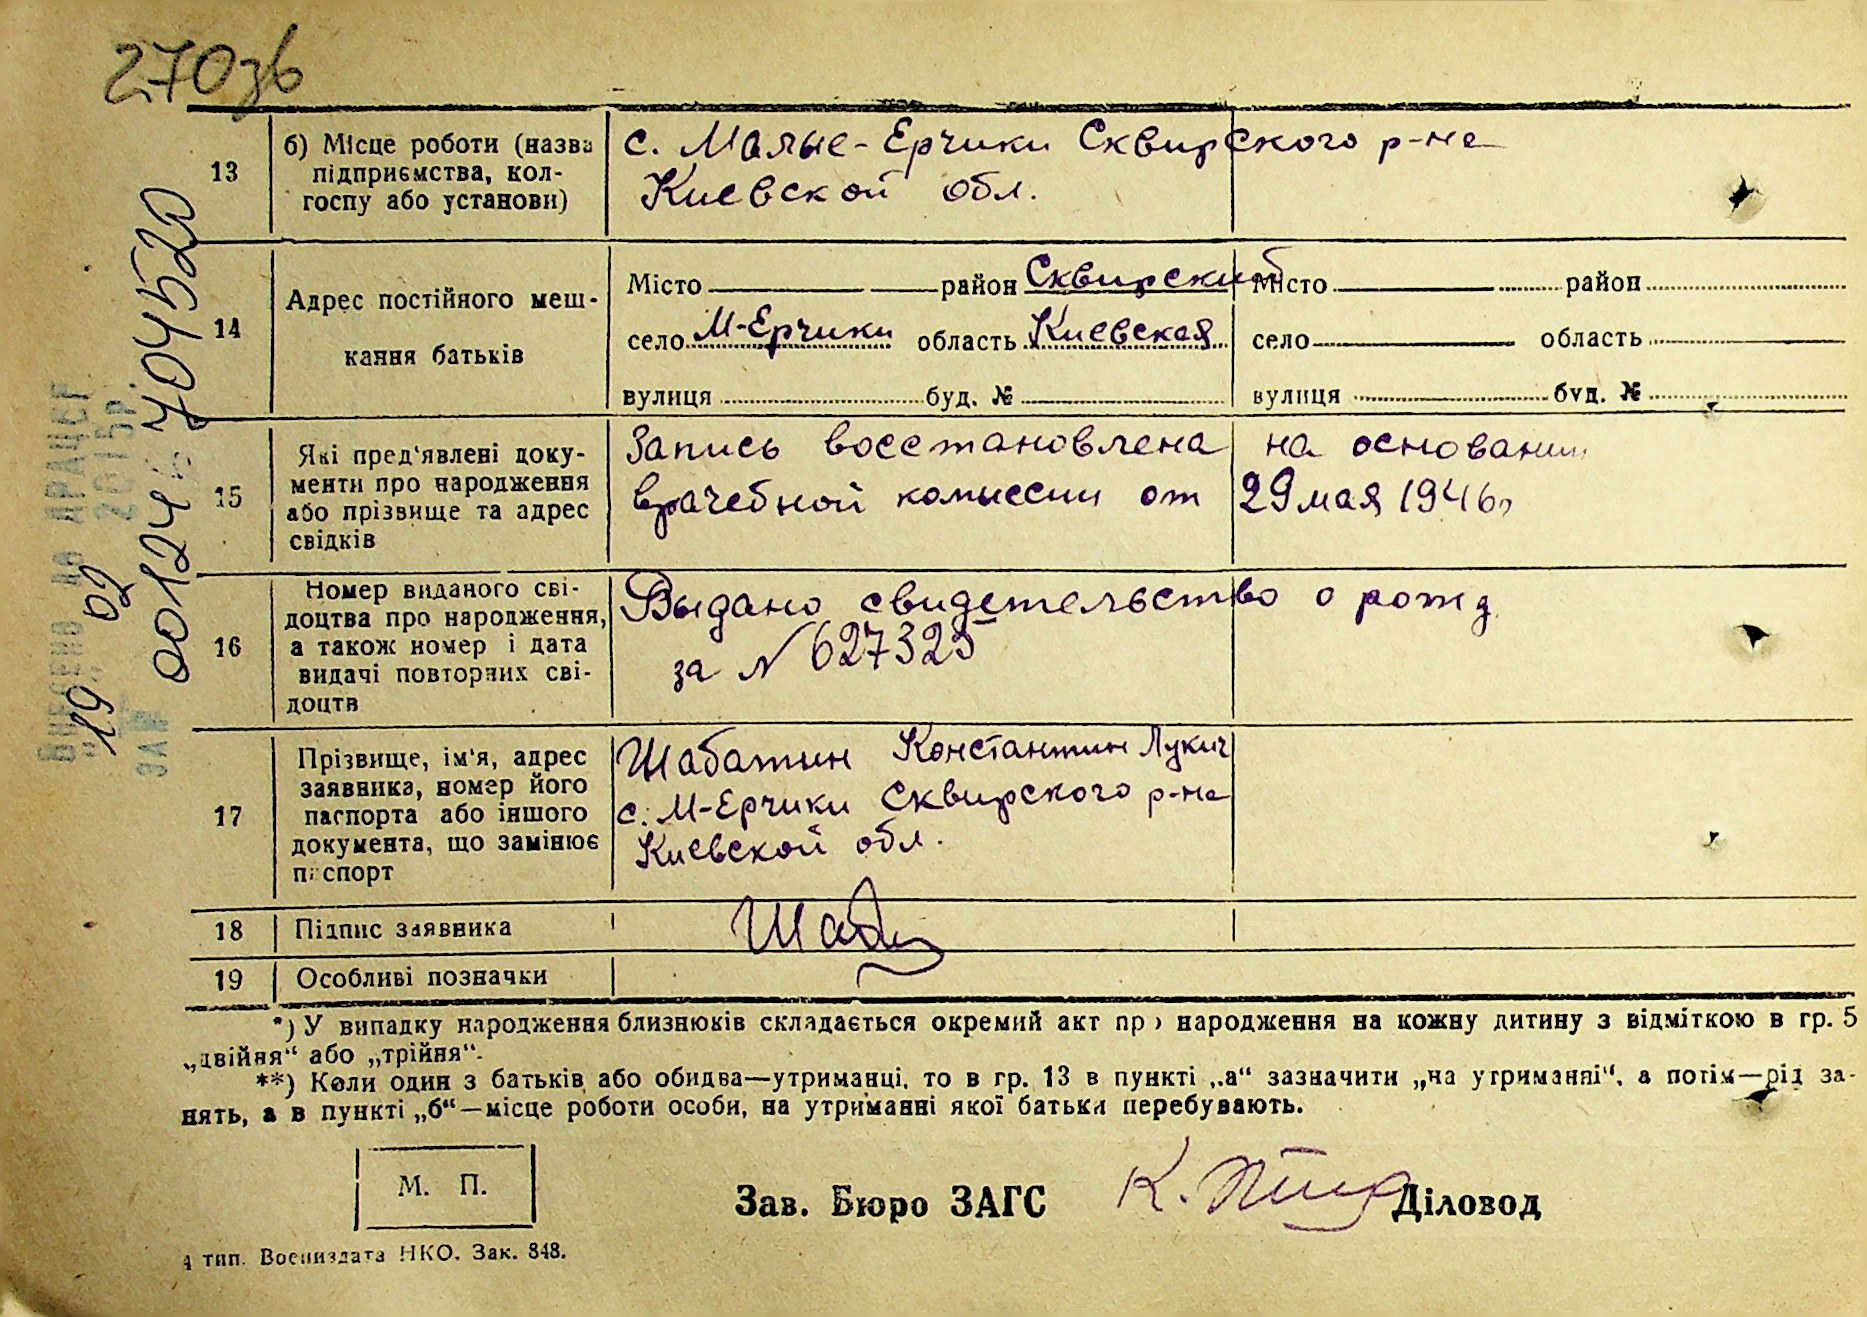 270зв
13
б) Місце роботи (назва
підприємства, кол-
госпу або установи)
с. Малые-Ерчики Сквирского р-на
Киевской обл.
14
Адрес постійного меш-
кання батьків
Місто район Сквирский
село М-Ерчики область Киевская
вулиця буд. №
Місто район
село область
вулиця буд. №
15
Які пред'явлені доку-
менти про народження
або прізвище та адрес
свідків
Запись восстановлена на основании
врачебной комиссии от 29 мая 1946г
16
Номер виданого сві-
доцтва про народження,
а також номер і дата
видачі повторних сві-
доцтв
Выдано свидетельство о рожд
за № 627325
17
Прізвище, ім'я, адрес
заявника, номер його
паспорта або іншого
документа, що замінює
паспорт
Шабатин Константин Лукич
с. М-Ерчики Сквирского р-на
Киевской обл.
18
Підпис заявника
Шаб
19
Особливі позначки
*) У випадку народження близнюків складається окремий акт про народження на кожну дитину з відміткою в гр. 5
„двійня“ або „трійня“.
**) Коли один з батьків або обидва—утриманці, то в гр. 13 в пункті „а“ зазначити „на утриманні“, а потім—рід за-
нять, а в пункті „б“—місце роботи особи, на утриманні якої батьки перебувають.
М. П.
Зав. Бюро ЗАГС
Діловод
4 тип. Воениздата НКО. Зак. 848.
Внесено до ДРАЦСГ
"19" 02 2015р.
ЗА №
00124 704520